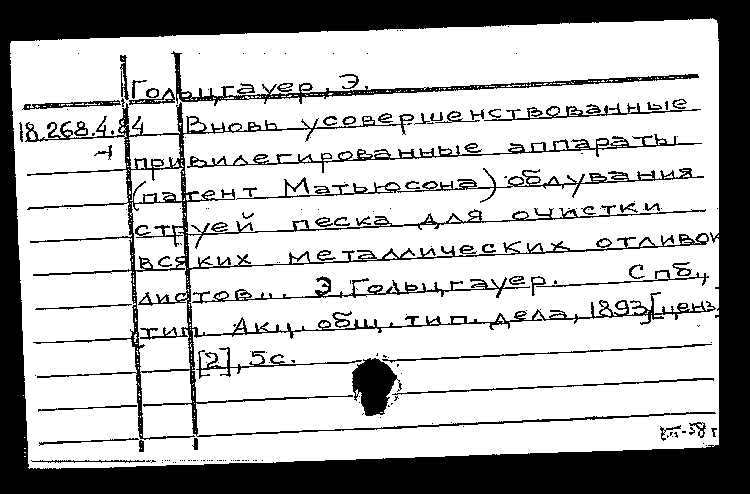 Гольцгауер, Э.
18.268.4.84 Вновь усовершенствованные
привилегированные аппараты
(патент Матьюсона) обдувания
струей песка для очистки
всяких металлических отливок
листов... Э. Гольцгауер. Спб.,
тип. Акц. общ. тип. дела, 1893 [ценз.
[2], 5 с.